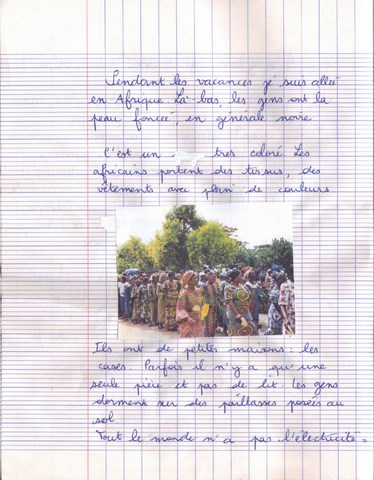 Pendant les vacances je suis allée
en Afrique. Là-bas, les gens ont la
peau foncée, en générale noire
C'est un très coloré. Les
africains portent des tissus, des
vêtements avec plein de couleurs
Ils ont de petites maisons : les
cases. Parfois il n'y a qu'une
seule pièce et pas de lit. Les gens
dorment sur des paillasses posées au
sol.
Tout le monde n'a pas l'électricité =